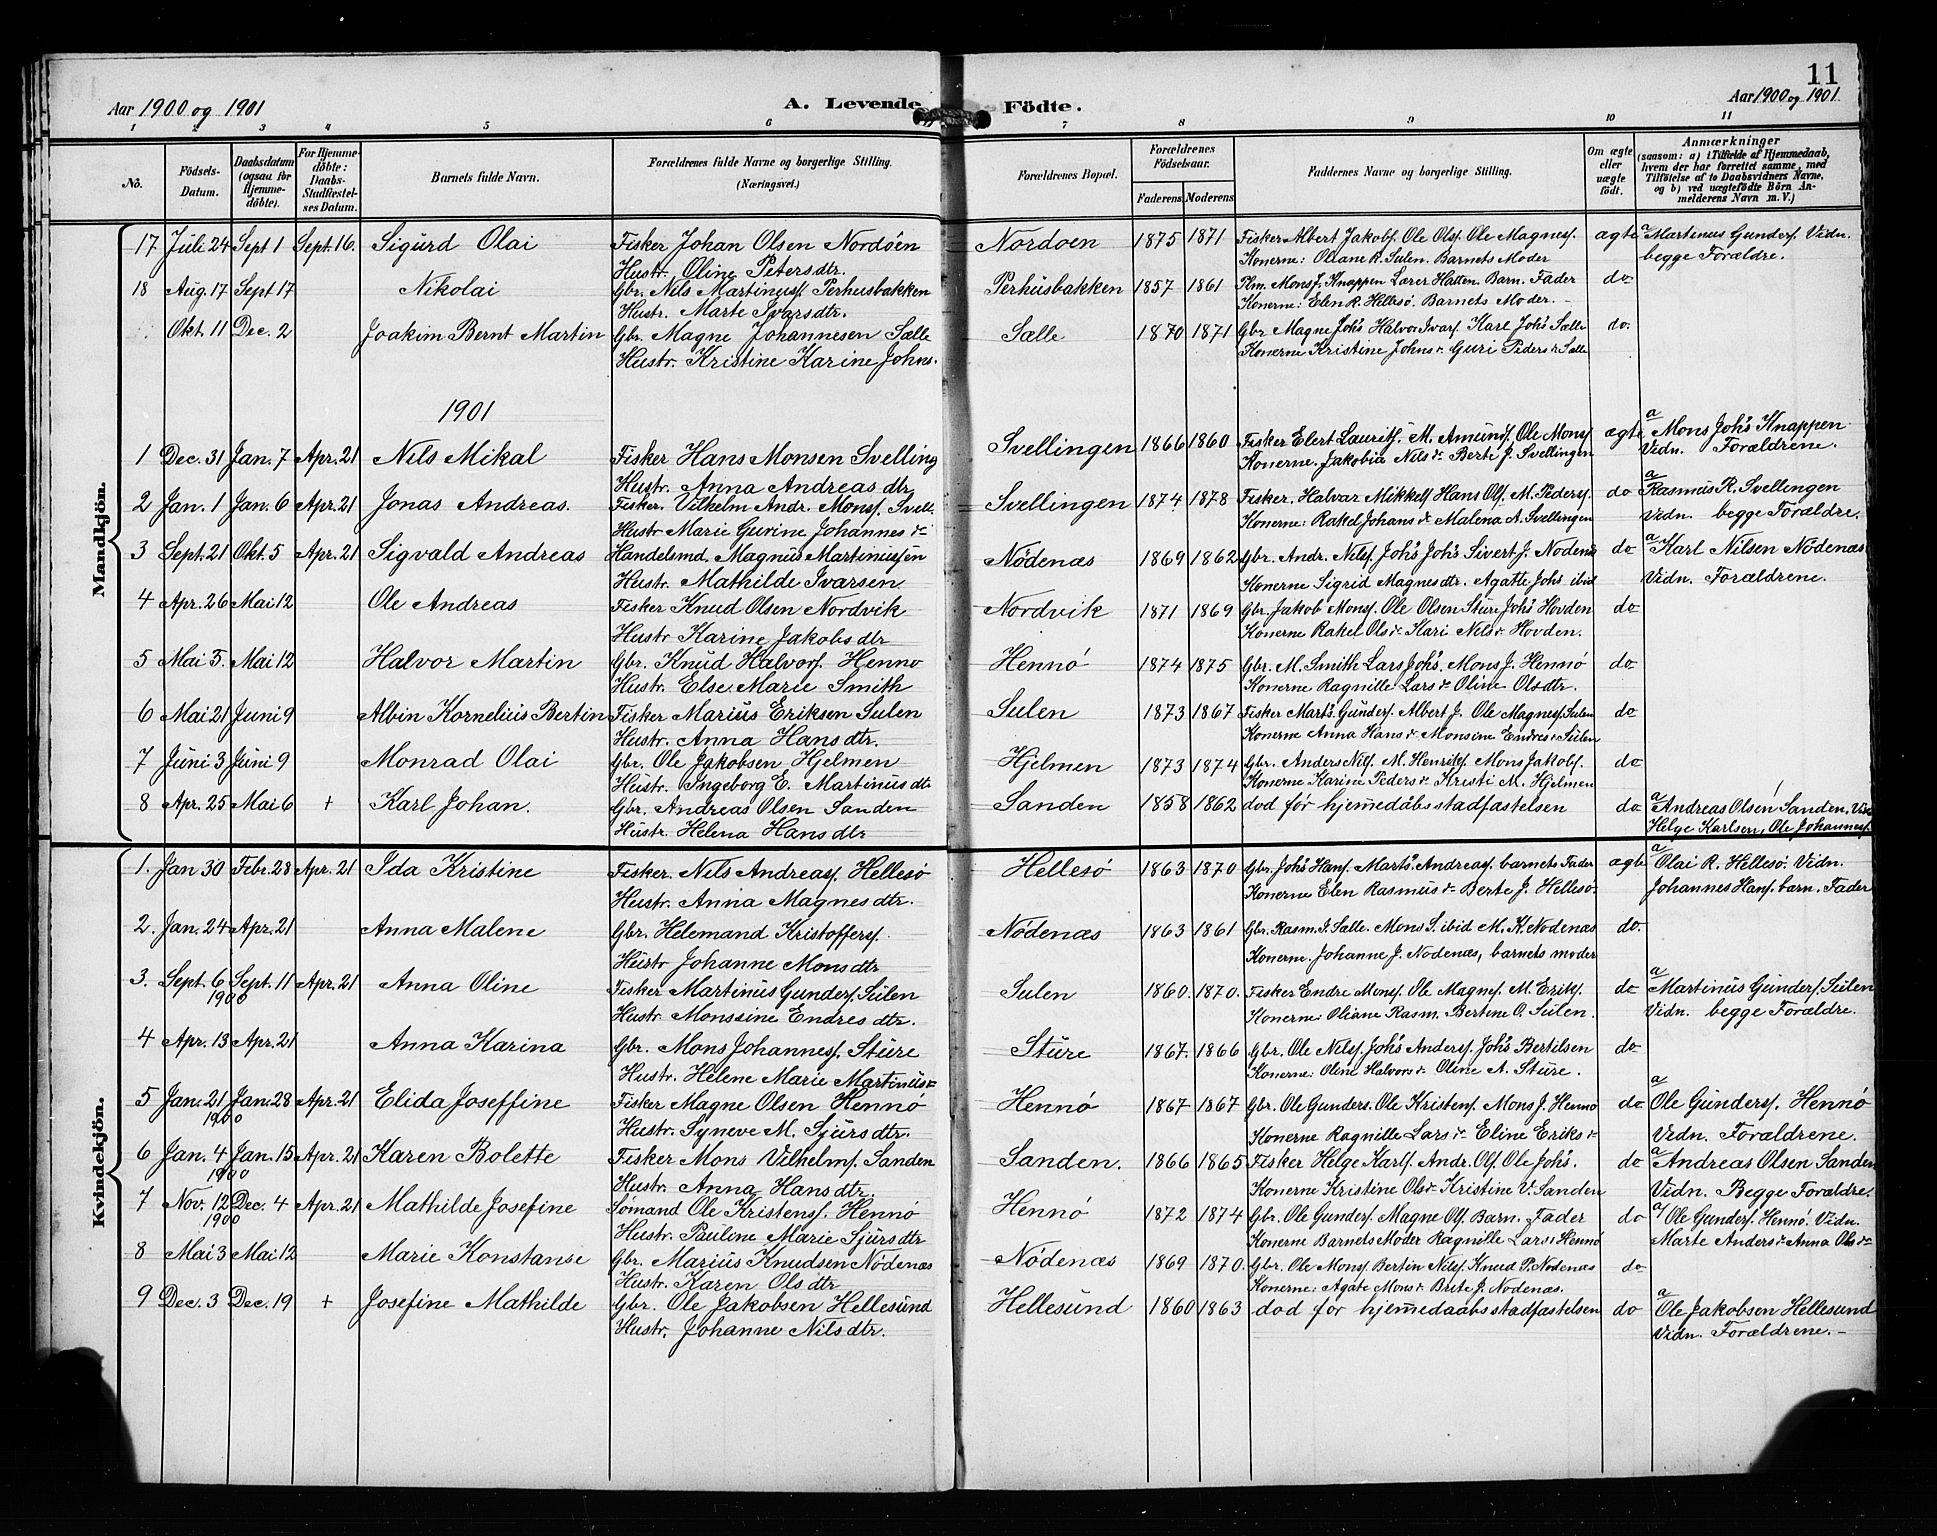 11
Aar 1900 og 1901 A. Levende Födte. Aar 1900 og 1901.
1 2 3 4 5 6 7 8 9 10 11
No. Födsels-Datum. Daabsdatum (ogsaa for Hjemme-döbte). For Hjemme-döbte: Daabs-Stadfæstel-ses Datum. Barnets fulde Navn. Forældrenes fulde Navne og borgerlige Stilling. (Næringsvei.) Forældrenes Bopæl. Forældrenes Födselsaar. Faderens Moderens Faddernes Navne og borgerlige Stilling. Om ægte eller uægte födt. Anmærkninger (saasom: a) i Tilfælde af Hjemmedaab, hvem der har forrettet samme, med Tilföielse af to Daabsvidners Navne, og b) ved uægtefödte Börn An-melderens Navn m. V.)
Mandkjön.
17 Juli 24 Sept 1 Sept. 16. Sigurd Olai Fisker Johan Olsen Nordöen Nordoen 1875 1871 Fisker Albert Jakobs. Ole Ols. Ole Magnes. ægte a Martinus Gunders. Vidn.
Hustr. Oline Petersdtr. Konerne: Oliane R. Sulen. Barnets Moder begge Forældre.
18 Aug. 17 Sept 17 Nikolai Gbr. Nils Martinus. Perhusbakken Perhusbakken 1857 1861 Plm. Mons J. Knappen Lærer Hatten. Barn. Fader do
Hustr. Marte Ivarsdtr. Konerne: Elen R. Hellesö. Barnets Moder.
Okt. 11 Dec. 2 Joakim Bernt Martin Gbr. Magne Johannesen Sælle Sælle 1870 1871 Gbr Magne Joh's Halvor Ivars. Karl Joh's Sælle do.
Hustr. Kristine Karine Johns. Konerne Kristine Johns dr Guri Peders dr Sælle
1901
1 Dec. 31 Jan. 7 Apr. 21 Nils Mikal Fisker Hans Monsen Svelling Svellingen 1866 1860 Fisker Elert Laurits. M. Amunds. Ole Mons. ægte a Mons Joh's Knappen
Hustr. Anna Andreas dtr Konerne. Jakobia Nils dr Berte J. Svellingen Vidn. Forældrene.
2 Jan. 1 Jan. 6 Apr. 21 Jonas Andreas. Fisker. Vilhelm Andr. Mons. Svell. Svellingen 1874 1878 Fisker. Halvar Mikkels. Hans Ols. M. Peders. do a Rasmus R. Svellingen
Hustr Marie Gurine Johannes dr Konerne: Rakel Johans dr Malena A. Svellingen Vidn. begge Forældre.
3 Sept. 21 Okt. 5 Apr. 21 Sigvald Andreas Handelsmd. Magnus Martinussen Nödenæs 1869 1862 Gbr. Andr. Nils. Joh's Joh's Sivert J. Nodenæs do a Karl Nilsen Nödenæs
Hustr. Mathilde Ivarsen Konerne Sigrid Magnesdtr. Agatte Johs ibid Vidn. Forældrene.
4 Apr. 26 Mai 12 Ole Andreas Fisker Knud Olsen Nordvik Nordvik 1871 1869 Gbr. Jakob Mons. Ole Olsen Sture Joh's Hovden do
Hustr Karine Jakobs dtr Konerne Rakel Ols dr Kari Nils dr Hovden.
5 Mai 5. Mai 12 Halvor Martin Gbr. Knud Halvors. Henno Hennö 1874 1875 Gbr. M. Smith Lars Joh's. Mons J. Hennö do
Hustr. Else Marie Smith Konerne Ragnille Lars dr Oline Olsdtr.
6 Mai 21 Juni 9 Albin Kornelius Bertin Fisker Marius Eriksen Sulen Sulen 1873 1867 Fisker Mart's. Gunders. Albert J. Ole Magnes. Sulen do
Hustr. Anna Hans dtr. Konerne Anna Hans dr Monsine Endres dr Sulen
7 Juni 3 Juni 9 Monrad Olai Gbr. Ole Jakobsen Hjelmen Hjelmen 1873 1874 Gbr. Anders Nils. M. Henriks. Mons Jakobs. do
Hustr. Ingeborg E. Martinus dtr. Konerne Karine Peders dr Kristi M. Hjelmen
8 Apr. 25 Mai 6 + Karl Johan. Gbr. Andreas Olsen Sanden Sanden 1858 1862 död för hjemedåbsstadfæstelsen do a Andreas Olsen Sanden. Vidn
Hustr. Helena Hans dtr Helge Karlsen, Ole Johannes.
Kvindekjön.
1. Jan 30 Febr. 28 Apr. 21 Ida Kristine Fisker. Nils Andreas. Hellesö Hellesö 1863 1870 Gbr. Joh's Hans. Mart's. Andreas. barnets Fader ægte a Olai R. Hellesö. Vidn.
Hustr. Anna Magnes dtr. Konerne Elen Rasmus dr Berte J. Hellesö Johannes Hans. barn. Fader
2. Jan. 24 Apr. 21 Anna Malene Gbr. Helemand Kristoffers. Nödenæs 1863 1861 Gbr. Rasm. J. Sælle. Mons S. ibid M. K. Nodenæs do.
Hustr Johanne Mons dtr Konerne. Johanne J. Nodenæs, barnets moder
3. Sept. 6 1900 Sept. 11 Apr. 21 Anna Oline Fisker Martinus Gunders. Sulen Sulen 1860. 1870. Fisker Endre Mons. Ole Magn. M. Eriks. do a Martinus Gunders. Sulen
Hustr. Monssine Endres dtr. Konerne: Oliane Rasm. Bertene O. Sulen. Vidn. begge Forældre.
4 Apr. 13 Apr. 21 Anna Karina Gbr. Mons Johannes. Sture Sture 1867. 1866 Gbr. Ole Nils. Joh's Anders. Joh's Bertilsen do
Hustr. Helene Marie Martinus dr Konerne: Oline Halvors dr Oline A. Sture.
5 Jan. 21 1900 Jan. 28 Apr. 21 Elida Joseffine Fisker Magne Olsen Hennö Hennö 1867 1867 Gbr. Ole Gunders. Ole Kristens. Mons J. Henno do a Ole Gunders. Hennö
Hustr. Syneve M. Sjurs dtr. Konerne Ragnille Lars dr Eline Eriks dr Vidn. Forældrene.
6 Jan. 4 1900 Jan. 15 Apr. 21 Karen Bolette Fisker Mons Vilhelms. Sanden Sanden. 1866 1865 Fisker Helge Karls. Andr. Ols. Ole Joh's. do a Andreas Olsen Sanden
Hustr. Anna Hans dtr. Konerne Kristine Ols dr Kristine V. Sanden Vidn. Begge Forældre.
7 Nov. 12 1900 Dec. 4 Apr. 21 Mathilde Josefine Sömand Ole Kristens. Hennö Hennö 1872 1874 Gbr. Ole Gunders. Magne Ols. Barn. Fader do a/ Ole Gunders. Hennö. Vidn.
Hustr. Pauline Marie Sjurs dtr Konerne Barnets Moder Ragnille Lars dr Hennö Marte Anders dr Anna Ols dr
8 Mai 3 Mai 12 Marie Konstanse Gbr. Marius Knudsen Nödenæs Nödenæs 1869 1870 Gbr. Ole Mons. Bertin Nils. Knud P. Nodenæs do
Hustr. Karen Ols dtr Konerne: Agate Mons dr Brite J. Nodenæs.
9 Dec. 3 Dec. 19 + Josefine Mathilde Gbr. Ole Jakobsen Hellesund Hellesund 1860 1863 död for hjemmedaabsstadfæstelsen do a Ole Jakobsen Hellesund
Hustr. Johanne Nils dtr. Vidn. Forældrene.